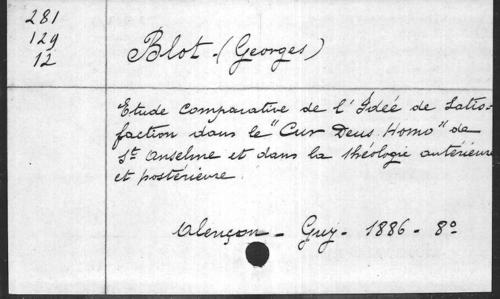 281
129
12
Blot - (Georges)
Etude Comparative de l'Idée de Satis-
faction dans le "Cur Deus Homo" de
St Anselme et dans la théologie antérieure
et postérieure.
Alençon - Guy - 1886 - 8º